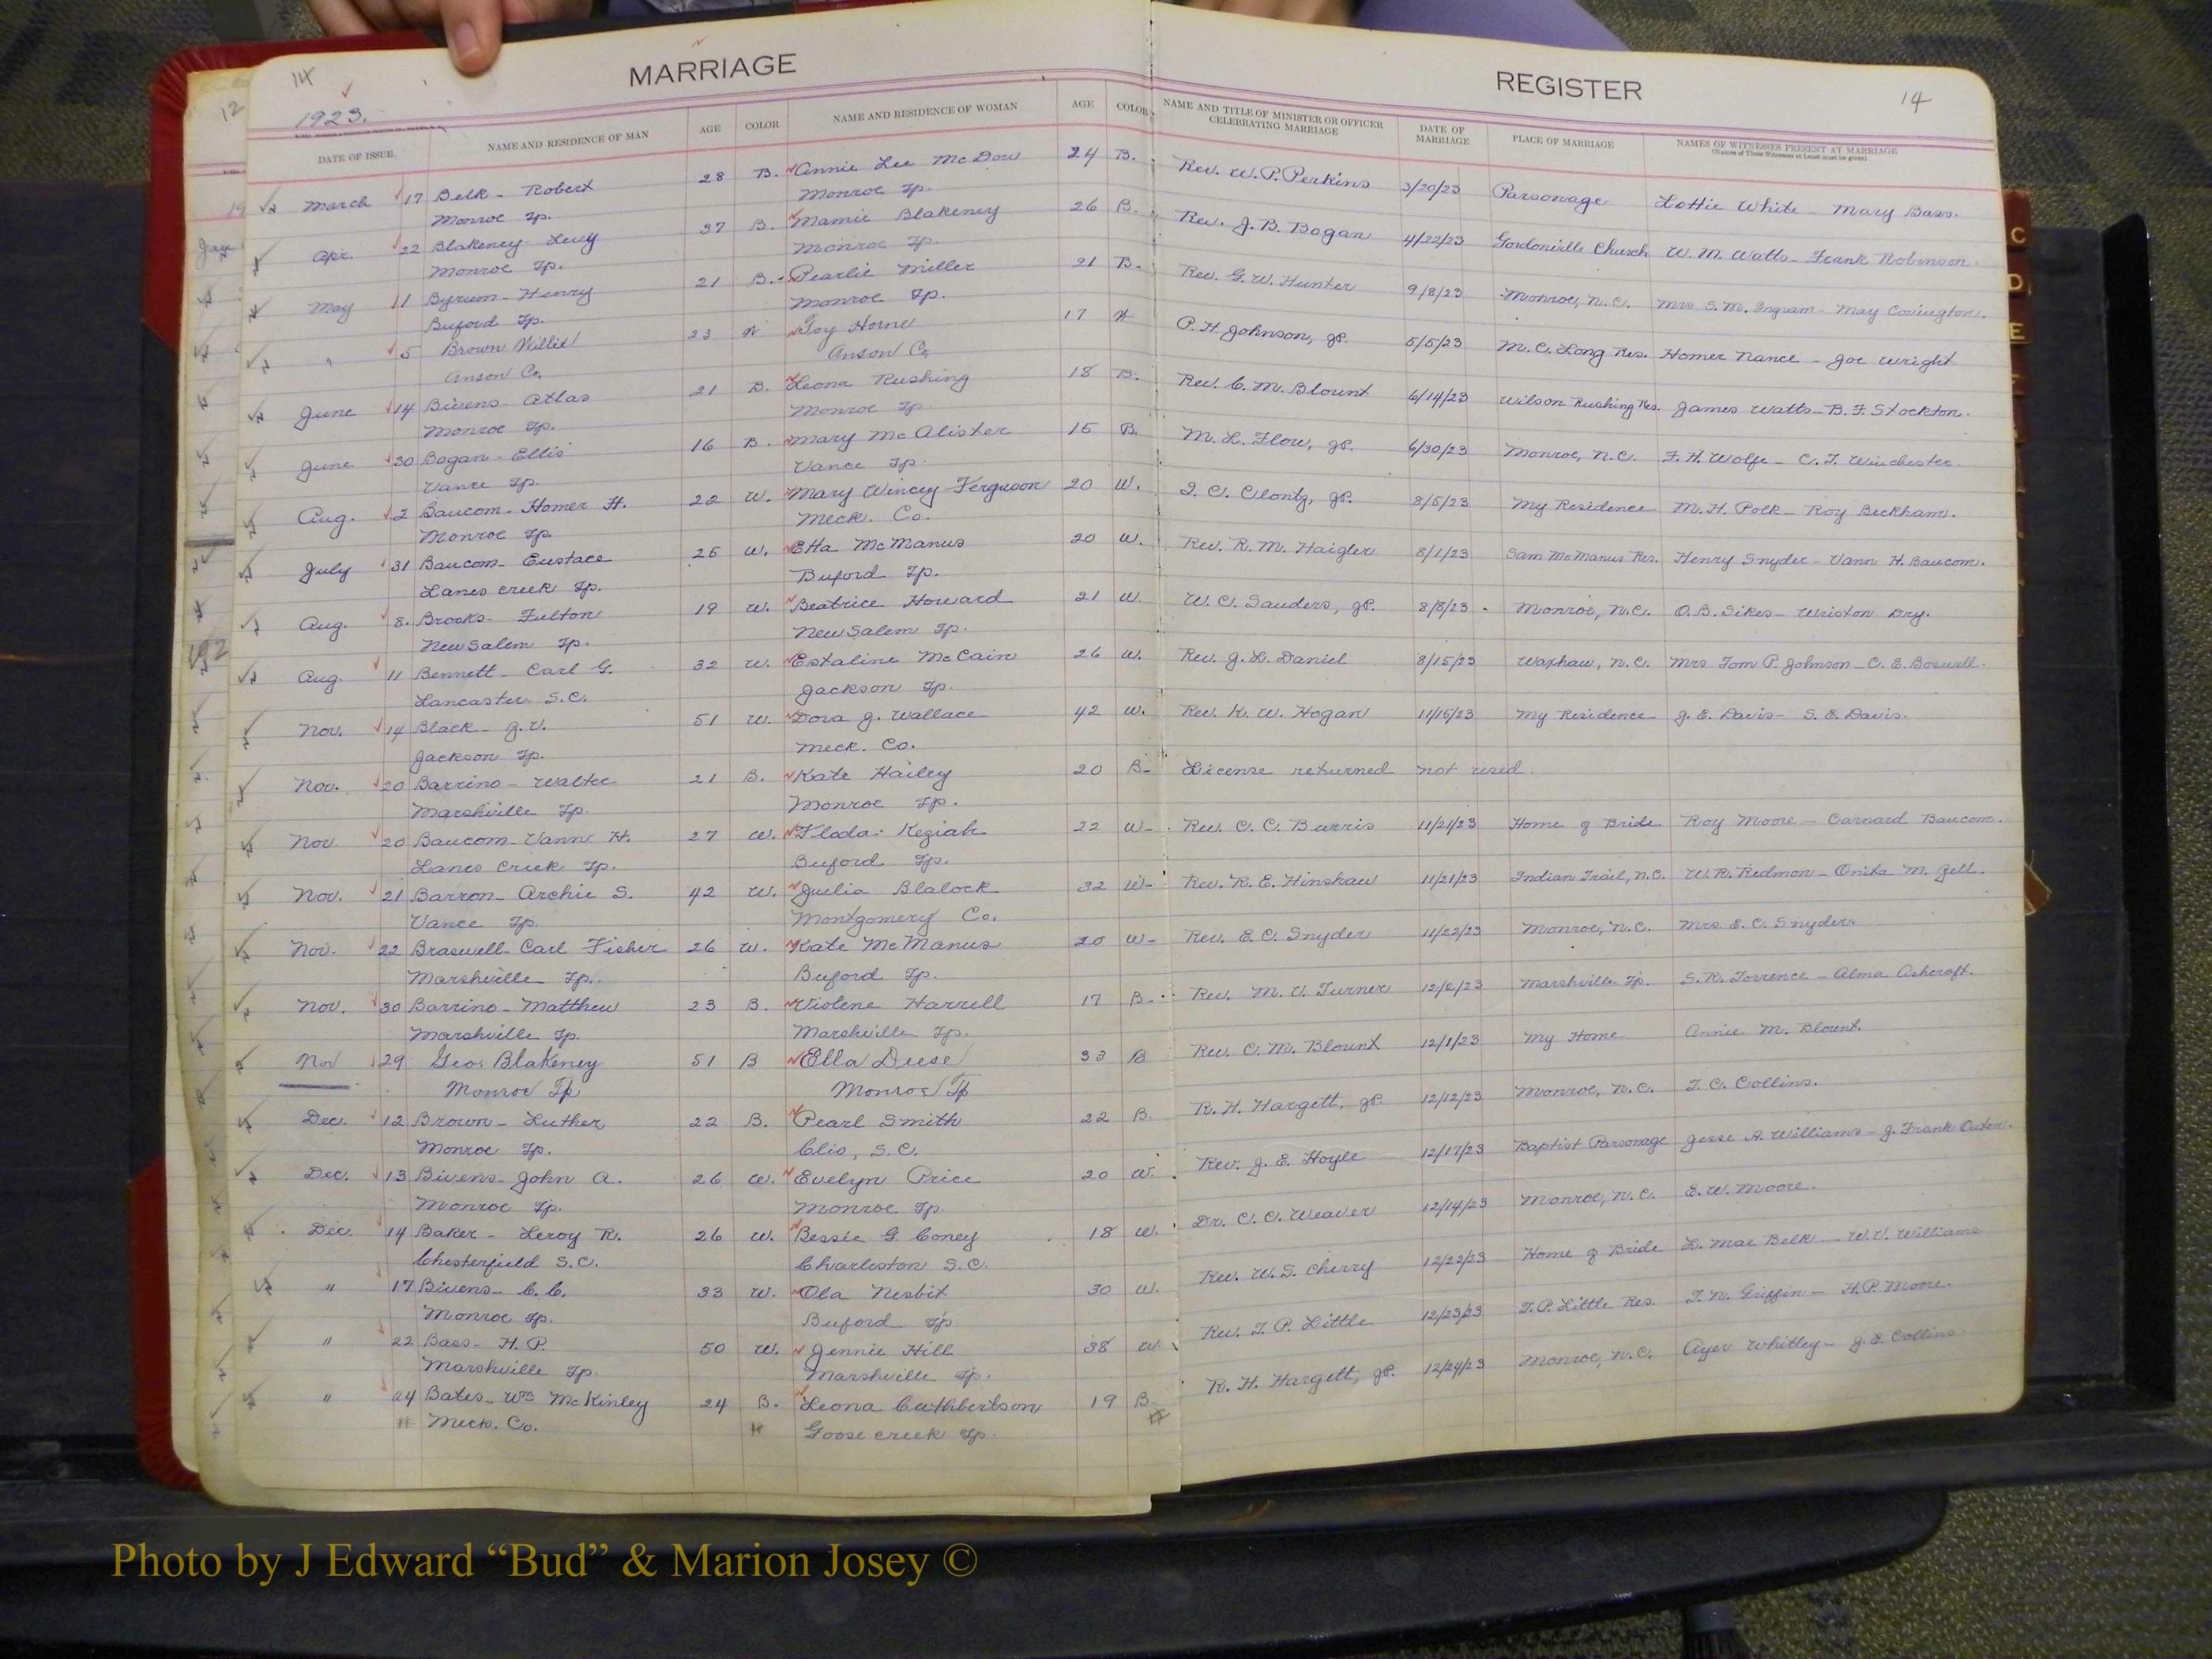 14
MARRIAGE
REGISTER
14
12
1923.
DATE OF ISSUE NAME AND RESIDENCE OF MAN AGE COLOR NAME AND RESIDENCE OF WOMAN AGE COLOR NAME AND TITLE OF MINISTER OR OFFICER CELEBRATING MARRIAGE DATE OF MARRIAGE PLACE OF MARRIAGE NAMES OF WITNESSES PRESENT AT MARRIAGE
(Names of Three Witnesses at Least must be given)
March 17 Belk - Robert 28 B. Annie Lee McDow 24 B. Rev. W. P. Perkins 3/20/23 Parsonage Lottie White - Mary Bass.
Monroe Tp. Monroe Tp.
Apr. 22 Blakeney - Levy 37 B. Mamie Blakeney 26 B. Rev. J. B. Bogan 4/22/23 Gordonville Church W. M. Watts - Frank Robinson.
Monroe Tp. Monroe Tp.
May 11 Byrum - Henry 21 B. Pearlie Miller 21 B. Rev. G. W. Hunter 9/8/23 Monroe, N.C. Mrs S. M. Ingram - May Covington.
Buford Tp. Monroe Tp.
" 5 Brown Willie 23 W Toy Horne 17 W P. H. Johnson, JP. 5/5/23 M. C. Long Res. Homer Nance - Joe Wright.
Anson Co. Anson Co.
June 14 Bivens - Atlas 21 B. Leona Rushing 18 B. Rev. C. M. Blount 6/14/23 Wilson Rushing Res. James Watts - B. F. Stockton.
Monroe Tp. Monroe Tp
June 30 Bogan - Ellis 16 B. Mary McAlister 15 B. M. L. Flow, JP. 6/30/23 Monroe, N.C. F. H. Wolfe - C. T. Winchester.
Vance Tp. Vance Tp.
Aug. 2 Baucom - Homer H. 22 W. Mary Wincey Ferguson 20 W. I. C. Clontz, JP. 8/5/23 My Residence M. H. Polk - Roy Beckham.
Monroe Tp. Meck. Co.
July 31 Baucom - Eustace 25 W. Etta McManus 20 W. Rev. R. M. Haigler 8/1/23 Sam McManus Res. Henry Snyder - Vann H. Baucom.
Lanes Creek Tp. Buford Tp.
Aug. 8. Brooks - Fulton 19 W. Beatrice Howard 21 W W. C. Sanders, JP. 8/8/23 Monroe, N.C. O. B. Sikes - Wriston Dry.
New Salem Tp. New Salem Tp.
Aug. 11 Bennett - Carl G. 32 W. Estaline McCain 26 W. Rev. J. L. Daniel 8/15/23 Waxhaw, N.C. Mrs Tom P. Johnson - C. E. Boswell.
Lancaster S.C. Jackson Tp.
Nov. 14 Black - J. V. 51 W. Dora J. Wallace 42 W. Rev. K. W. Hogan 11/15/23 My Residence J. E. Davis - S. E. Davis.
Jackson Tp. Meck. Co.
Nov. 20 Barrino - Walter 21 B. Kate Hailey 20 B - License returned not used.
Marshville Tp. Monroe Tp.
Nov. 20 Baucom - Vann H. 27 W. Floda Keziah 22 W - Rev. C. C. Burris 11/21/23 Home of Bride Roy Moore - Carnard Baucom.
Lanes Creek Tp. Buford Tp.
Nov. 21 Barron - Archie S. 42 W. Julia Blalock 32 W - Rev. R. E. Hinshaw 11/21/23 Indian Trail, N.C. W. R. Redmon - Onita M. Gell.
Vance Tp. Montgomery Co.
Nov. 22 Braswell - Carl Fisher 26 W. Kate McManus 20 W - Rev. E. C. Snyder 11/22/23 Monroe, N.C. Mrs. E. C. Snyder.
Marshville Tp. Buford Tp.
Nov. 30 Barrino - Matthew 23 B. Violene Harrell 17 B - Rev. M. V. Turner 12/2/23 Marshville Tp. S. R. Torrence - Alma Ashcraft.
Marshville Tp. Marshville Tp.
Nov 29 Geo. Blakeney 51 B Ella Deese 33 B Rev. C. M. Blount 12/1/23 My Home Annie M. Blount.
Monroe Tp Monroe Tp
Dec. 12 Brown - Luther 22 B. Pearl Smith 22 B. R. H. Hargett, JP. 12/12/23 Monroe, N.C. T. C. Collins.
Monroe Tp. Clio, S.C.
Dec. 13 Bivens - John A. 26 W. Evelyn Price 20 W. Rev. J. E. Hoyle 12/17/23 Baptist Parsonage Jesse A. Williams - J. Frank
Monroe Tp. Monroe Tp.
Dec. 14 Baker - Leroy R. 26 W. Bessie G Coney 18 W. Dr. C. C. Weaver 12/14/23 Monroe, N.C. E. W. Moore.
Chesterfield S.C. Charleston S.C.
" 17 Bivens - C. C. 33 W. Ola Nesbit 30 W. Rev. W. S. Cherry 12/22/23 Home of Bride L. Mae Belk - W. V. Williams
Monroe Tp. Buford Tp
" 22 Bass - H. P. 50 W. Jennie Hill 38 W Rev. T. P. Little 12/23/23 T. P. Little Res. T. N. Griffin - H. P. Moore.
Marshville Tp. Marshville Tp.
" 24 Bates - Wm McKinley 24 B. Leona Cuthbertson 19 B R. H. Hargett, JP. 12/24/23 Monroe, N.C. Ayer Whitley - J. E. Collins.
Meck. Co. Goose Creek Tp.
C
D
E
Photo by J Edward “Bud” & Marion Josey ©